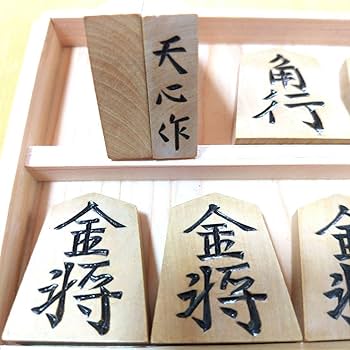 天心作
角行
金将
金将
金将